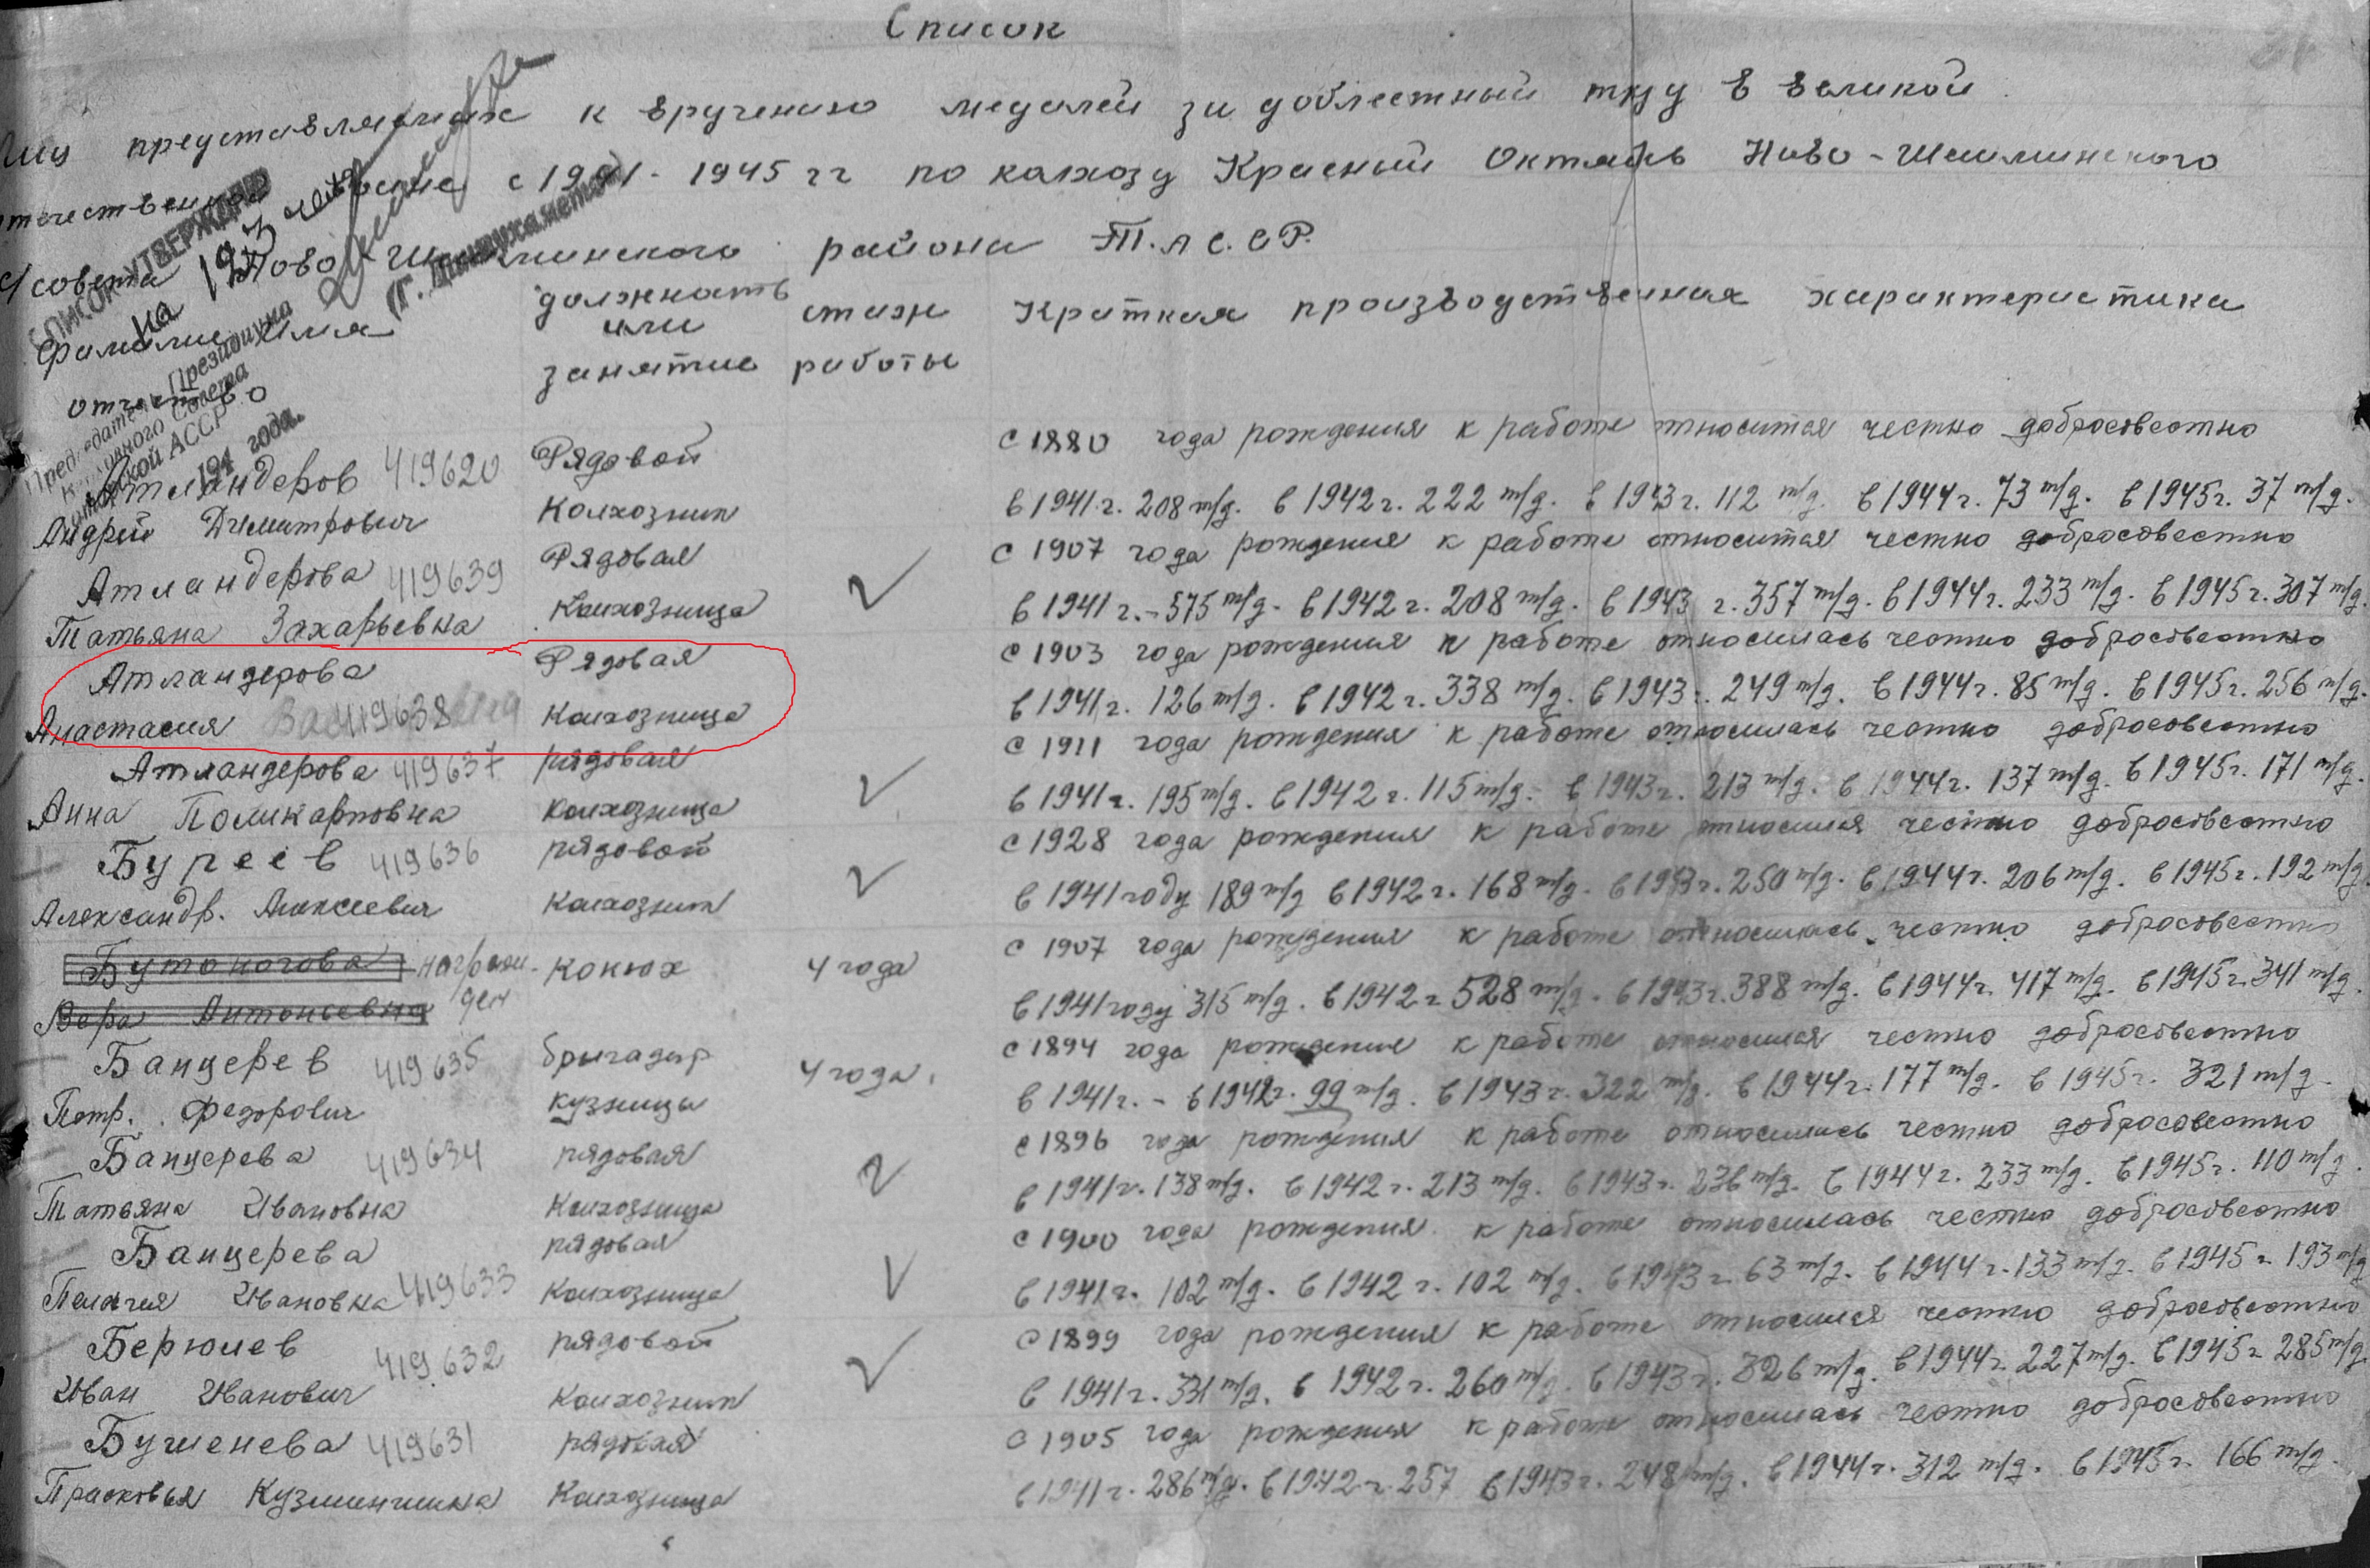 Список
Лиц представляемых к вручению медалей за доблестный труд в великой
отечественной войне с 1941-1945 гг по колхозу Красный Октябрь Ново-Шешминского
с/совета Ново-Шешминского района Т.А С.С Р.
СПИСОК УТВЕРЖДАЮ
на 193 чел
Президиума
Верховного Совета
АССР
194 года.
(Г. Динмухаметов)
Фамилие Имя
отчество
должность
или
занятие
стаж
работы
Краткая производственная характеристика
Атландеров 419620 Рядовой с 1880 года рождения к работе относится честно добросовестно
Андрей Дмитрович Колхозник в 1941 г. 208 т/д. в 1942 г. 222 т/д. в 1943 г. 112 т/д. в 1944 г. 73 т/д. в 1945 г. 37 т/д.
Атландерова 419639 Рядовая с 1907 года рождения к работе относится честно добросовестно
Татьяна Захарьевна Колхозница в 1941 г. - 575 т/д. в 1942 г. 208 т/д. в 1943 г. 357 т/д. в 1944 г. 233 т/д. в 1945 г. 307 т/д.
Атландерова Рядовая с 1903 года рождения к работе относилась честно добросовестно
Анастасия 419638 Колхозница в 1941 г. 126 т/д. в 1942 г. 338 т/д. в 1943 г. 249 т/д. в 1944 г. 85 т/д. в 1945 г. 256 т/д.
Атландерова 419637 рядовая с 1911 года рождения к работе относилась честно добросовестно
Анна Поликарповна колхозница в 1941 г. 195 т/д. в 1942 г. 115 т/д. в 1943 г. 213 т/д. в 1944 г. 137 т/д. в 1945 г. 171 т/д.
Буреев 419636 рядовой с 1928 года рождения к работе относился честно добросовестно
Александр. Алексеевич колхозник в 1941 году 189 т/д в 1942 г. 168 т/д. в 1943 г. 250 т/д. в 1944 г. 206 т/д. в 1945 г. 192 т/д.
Бутоногова награж- конюх 4 года с 1907 года рождения к работе относилась честно добросовестно
Вера Антоньевна ден в 1941 году 315 т/д. в 1942 г 528 т/д. в 1943 г. 388 т/д. в 1944 г. 417 т/д. в 1945 г. 341 т/д.
Банцерев 419635 бригадир 4 года. с 1894 года рождение к работе относился честно добросовестно
Петр. Федорович кузницы в 1941 г. - в 1942 г. 99 т/д. в 1943 г. 322 т/д. в 1944 г. 177 т/д. в 1945 г. 321 т/д.
Банцерева 419634 рядовая с 1896 года рождения к работе относилась честно добросовестно
Татьяна Ивановна Колхозница в 1941 г. 138 т/д. в 1942 г. 213 т/д. в 1943 г. 236 т/д. в 1944 г. 233 т/д. в 1945 г. 110 т/д.
Банцерева рядовая с 1900 года рождения к работе относилась честно добросовестно
Пелагея Ивановна 419633 Колхозница в 1941 г. 102 т/д. в 1942 г. 102 т/д. в 1943 г. 63 т/д. в 1944 г. 133 т/д. в 1945 г 193 т/д
Берюлев 419632 рядовой с 1899 года рождения к работе относился честно добросовестно
Иван Иванович Колхозник в 1941 г. 331 т/д. в 1942 г. 260 т/д. в 1943 г. 326 т/д. в 1944 г. 227 т/д. в 1945 г 285 т/д.
419631 рядовая с 1905 года рождения к работе относилась честно добросовестно
Прасковья Кузминишна Колхозница в 1941 г. 286 т/д. в 1942 г. 257 в 1943 г. 248 т/д. в 1944 г. 312 т/д. в 1945 г 166 т/д.